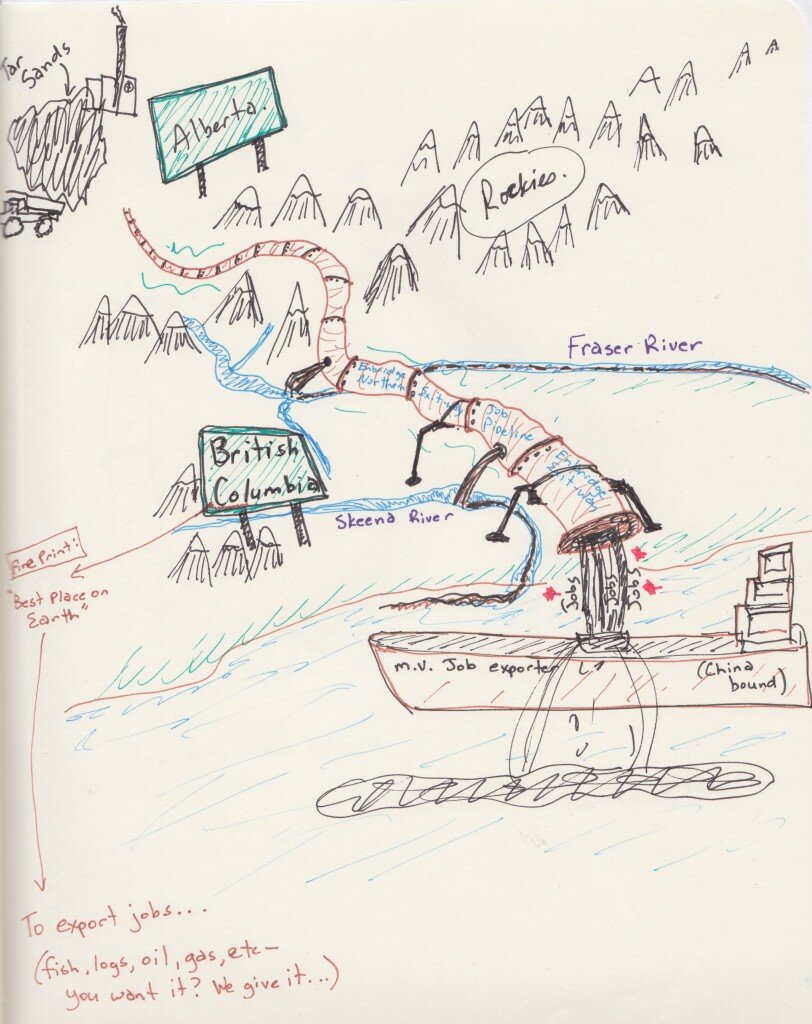 Tar
Sands
Alberta.
Rockies.
Fraser River
Enbridge
Northern
Job
Pipeline
Enbridge
British
Columbia
Skeena River
Fine Print:
"Best Place on
Earth"
Jobs
Jobs
Jobs
m.v. Job exporter
(China
bound)
To export jobs...
(fish, logs, oil, gas, etc—
you want it? We give it...)